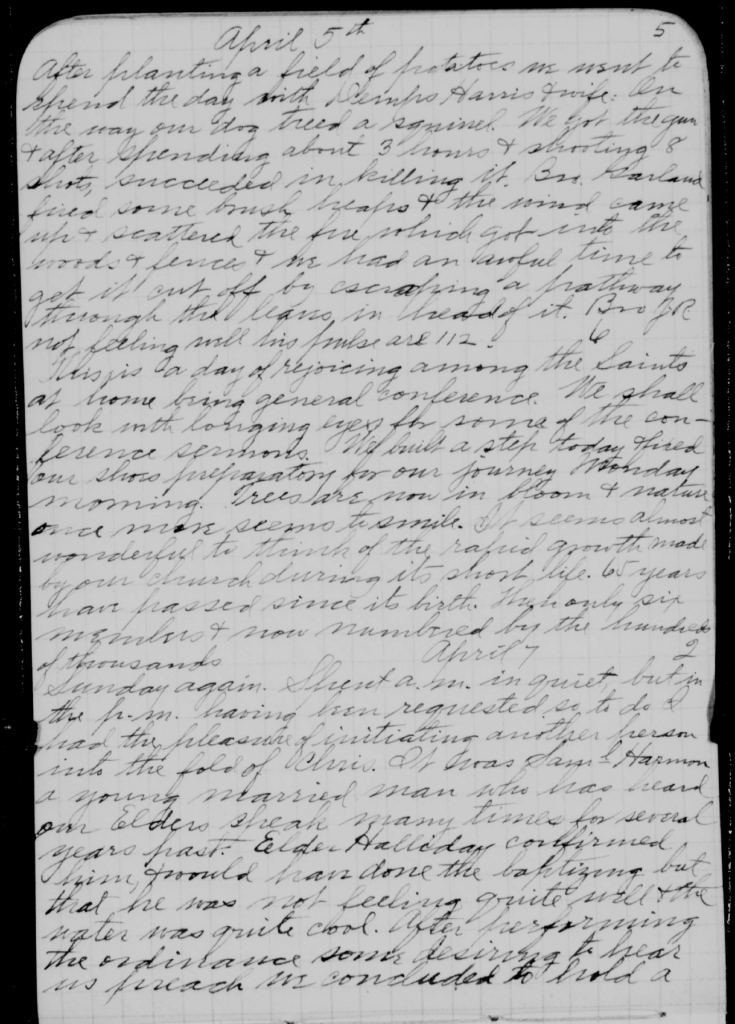 April 5th 5
After planting a field of potatoes we went to
spend the day with Demps Harris & wife. On
the way our dog treed a squirrel. We got the gun
& after spending about 3 hours & shooting 8
shots, succeeded in killing it. Bro. Garland
fired some brush heaps & the wind came
up & scattered the fire which got into the
woods & fences & we had an awful time to
get it cut off by escraping a pathway
through the leaves in head of it. Bro J R
not feeling well his pulse are 112.
6
This is a day of rejoicing among the Saints
at home being general conference. We shall
look with longing eyes for some of the con-
ference sermons. We built a step today & fixed
our shoes preparatory for our journey Monday
morning. Trees are now in bloom & nature
once more seems to smile. It seems almost
wonderful to think of the rapid growth made
by our church during its short life. 65 years
have passed since its birth. Then only six
members & now numbered by the hundreds
of thousands April 7 2
Sunday again. Spent a.m. in quiet, but in
the p.m. having been requested so to do I
had the pleasure of initiating another person
into the fold of Chris. It was Saml Harmon
a young married man who has heard
our Elders speak many times for several
years past. Elder Halliday confirmed
him, & would have done the baptizing but
that he was not feeling quite well & the
water was quite cool. After performing
the ordinance some desiring to hear
us preach we concluded to hold a